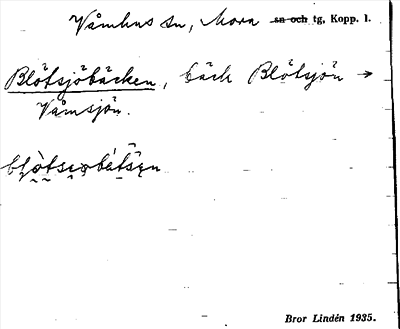 Våmhus sn, Mora ~~sn och~~ tg, Kopp. l.
Blötsjöbäcken, bäck Blötsjön →
Våmsjön.
Bror Lindén 1935.